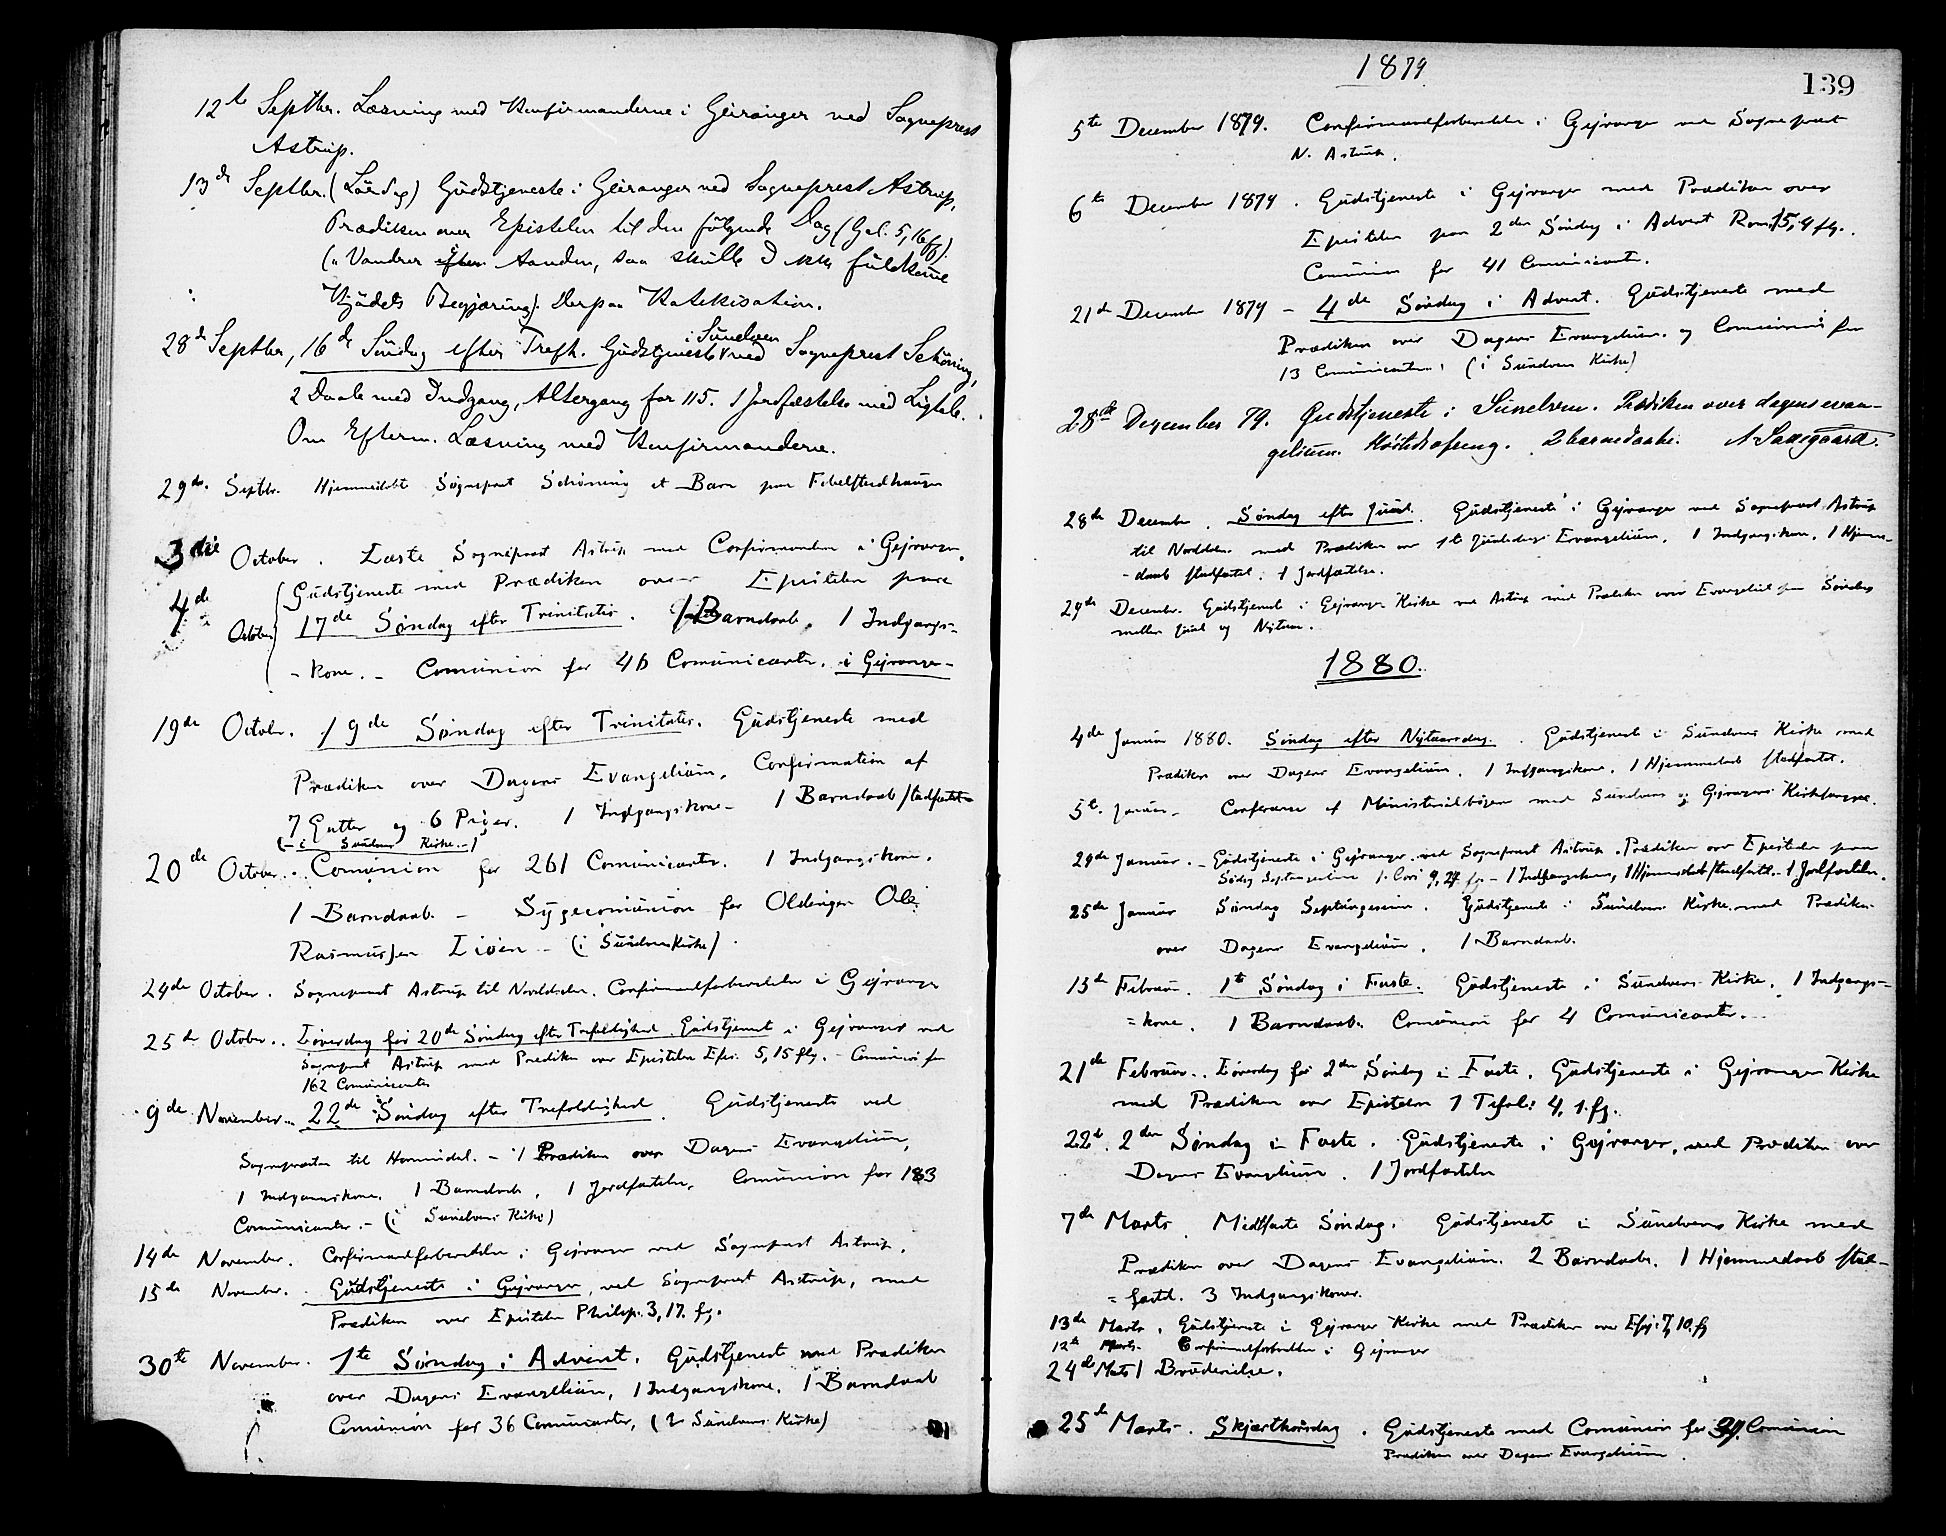 12te Septbr. Læsning med Konfirmanderne i Geiranger ved Sogneprest
Astrup.
13de Septbr. (Lördag) Gudstjeneste i Geiranger ved Sogneprest Astrup,
Prædiken over Epistelen til den følgende Dag (Gal. 5, 16 fg).
(„Vandrer efter Aanden, saa skulle I ikke fuldkomme
Kjödets Begjæring). Derpaa Katekisation.
28de Septbr, 16de Söndag efter Trefh. Gudstjeneste i Sunelven ved Sogneprest Schöning,
2 Daab med Indgang, Altergang for 115. 1 Jordfæstelse med Ligtale.
Om Efterm. Læsning med Konfirmanderne.
29de Septbr. Hjemmedøbt Sogneprest Schöning et Barn paa
3die October. Læste Sogneprest Astrup med Confirmanden i Gejranger.
4de October Gudstjeneste med Prædiken over Epistelen paa
17de Søndag efter Trinitatis. 1 Barndaab. 1 Indgangs-
-kone. - Comunion for 46 Comunicanter. i Gejranger-
19de Octobr. 19de Søndag efter Trinitatis. Gudstjeneste med
Prædiken over Dagens Evangelium. Confirmation af
7 Gutter og 6 Piger. 1 Indgangskone - 1 Barndaab stadfæstet
(- i Sunelvens Kirke -)
20de October. Comunion for 261 Comunicanter. 1 Indgangskone.
1 Barndaab - Sygecomunion for Oldingen Ole
Rasmussen Liøen - (i Sunelvens Kirke).
24de October. Sogneprest Astrup til Norddalen. Confirmantforberedelse i Gejranger
25de October. Løverdag før 20de Søndag efter Trefoldighed. Gudstjenest i Gejranger ved
Sogneprest Astrup med Prediken over Epistelen Efes. 5, 15 flg. - Comunion for
162 Comunicanter
9de November. 22de Søndag efter Trefoldighed. Gudstjeneste ved
Sognepresten til Hornindal. - 1 Prædiken over Dagens Evangelium,
1 Indgangskone. 1 Barndaab, 1 Jordfæstelse, Comunion for 183
Comunicanter. - (i Sunelvens Kirke)
14de November. Confirmantforberedelse i Gejranger ved Sogneprest Astrup.
15de November. Gudstjeneste i Gejranger, ved Sogneprest Astrup, med
Prædiken over Epistelen Philip. 3, 17. fg.
30te November. 1te Søndag i Advent. Gudstjenest med Prædiken
over Dagens Evangelium, 1 Indgangskone. 1 Barndaab
Comunion for 36 Comunicanter, (i Sunelvens Kirke)
1879
139
5te December 1879. Confirmantforberedelse i Gejranger ved Sogneprest
N. Astrup.
6te December 1879. Gudstjeneste i Gejranger med Prædiken over
Epistelen paa 2den Søndag i Advent Rom. 15, 4 flg.
Comunion for 41 Comunicanter.
21de December 1879 - 4de Søndag i Advent. Gudstjeneste med
Prædiken over Dagens Evangelium og Comunion for
13 Comunicanter. (i Sunelvens Kirke)
28de Dezember 79. Gudstjeneste i Sunelven. Prædiken over dagens evan-
gelium. 2 barnedaabe.
28de December. Søndag efter Juul. Gudstjeneste i Gejranger ved Sogneprest Astrup
til Norddalen med Prædiken over 1te Juledags Evangelium, 1 Indgangskone, 1 Hjemme-
-daab stadfæstet. 1 Jordfæstelse.
29de December. Gudstjenest i Gejranger Kirke ved Astrup med Prædiken over Evangeliet paa Søndag
mellem Juul og Nytaar.
1880.
4de Januar 1880. Søndag efter Nytaarsdag. Gudstjeneste i Sunelvens Kirke med
Prædiken over Dagens Evangelium. 1 Indgangskone. 1 Hjemmedaab stadfæstet.
5te Januar. Conferance af Ministerialbøgen med Sunelvens og Gejrangers Kirkesanger.
24de Januar. - Gudstjeneste i Gejranger ved Sogneprest Astrup. Prædiken over Epistelen paa
Søndag Septuagesima 1. Cori 9, 24 fg - 1 Indgangskone, 1 Hjemmedaab stadfæstet. 1 Jordfæstelse.
25de Januar Søndag Septuagesima. Gudstjeneste i Sunelvens Kirke med Prædiken
over Dagens Evangelium, 1 Barndaab.
15de Februar. 1te Søndag i Faste. Gudstjeneste i Sunelvens Kirke. 1 Indgangs-
=kone. 1 Barndaab. Comunion for 4 Comunicanter.
21de Februar. Løverdag før 2den Søndag i Faste, Gudstjeneste i Gejranger Kirke
med Prædiken over Epistelen 1 Tesal: 4, 1. fg.
22de. 2den Søndag i Faste. Gudstjeneste i Gejranger, med Prædiken over
Dagens Evangelium. 1 Jordfæstelse
7de Marts. Midtfaste Søndag. Gudstjeneste i Sunelvens Kirke med
Prædiken over Dagens Evangelium. 2 Barndaabe. 1 Hjemmedaab stad-
=fæstet. 3 Indgangskoner.
13de Marts. Gudstjeneste i Gejranger Kirke med Prædiken over 10. fg
12te Marts. Confirmantforberedelse i Gejranger
24de Mats 1 Brudevielse.
25de Marts. Skjærthorsdag. Gudstjeneste med Comunion for Comunion
Prædiken over Dagens Evangelium.